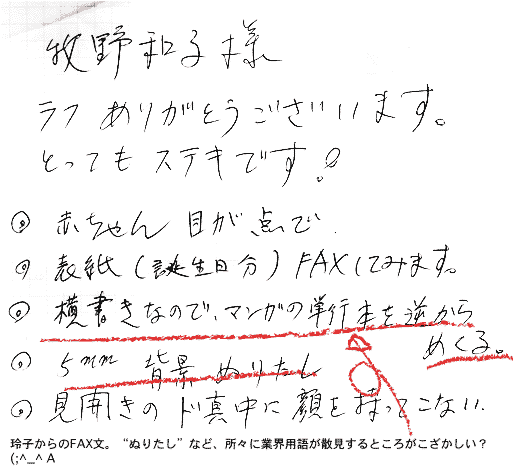 牧野和子様
ラフ ありがとうございます。
とっても ステキです!
◎ 赤ちゃん 目が点で.
◎ 表紙(誕生日分)FAXしてみます。
◎ 横書きなので、マンガの単行本を逆から
めくる。
◎ 5mm 背景 ぬりたし
◎ 見開きの ド真中に 顔を持ってこない.
玲子からのFAX文。“ぬりたし”など、所々に業界用語が散見するところがこざかしい?
(;^_^ A